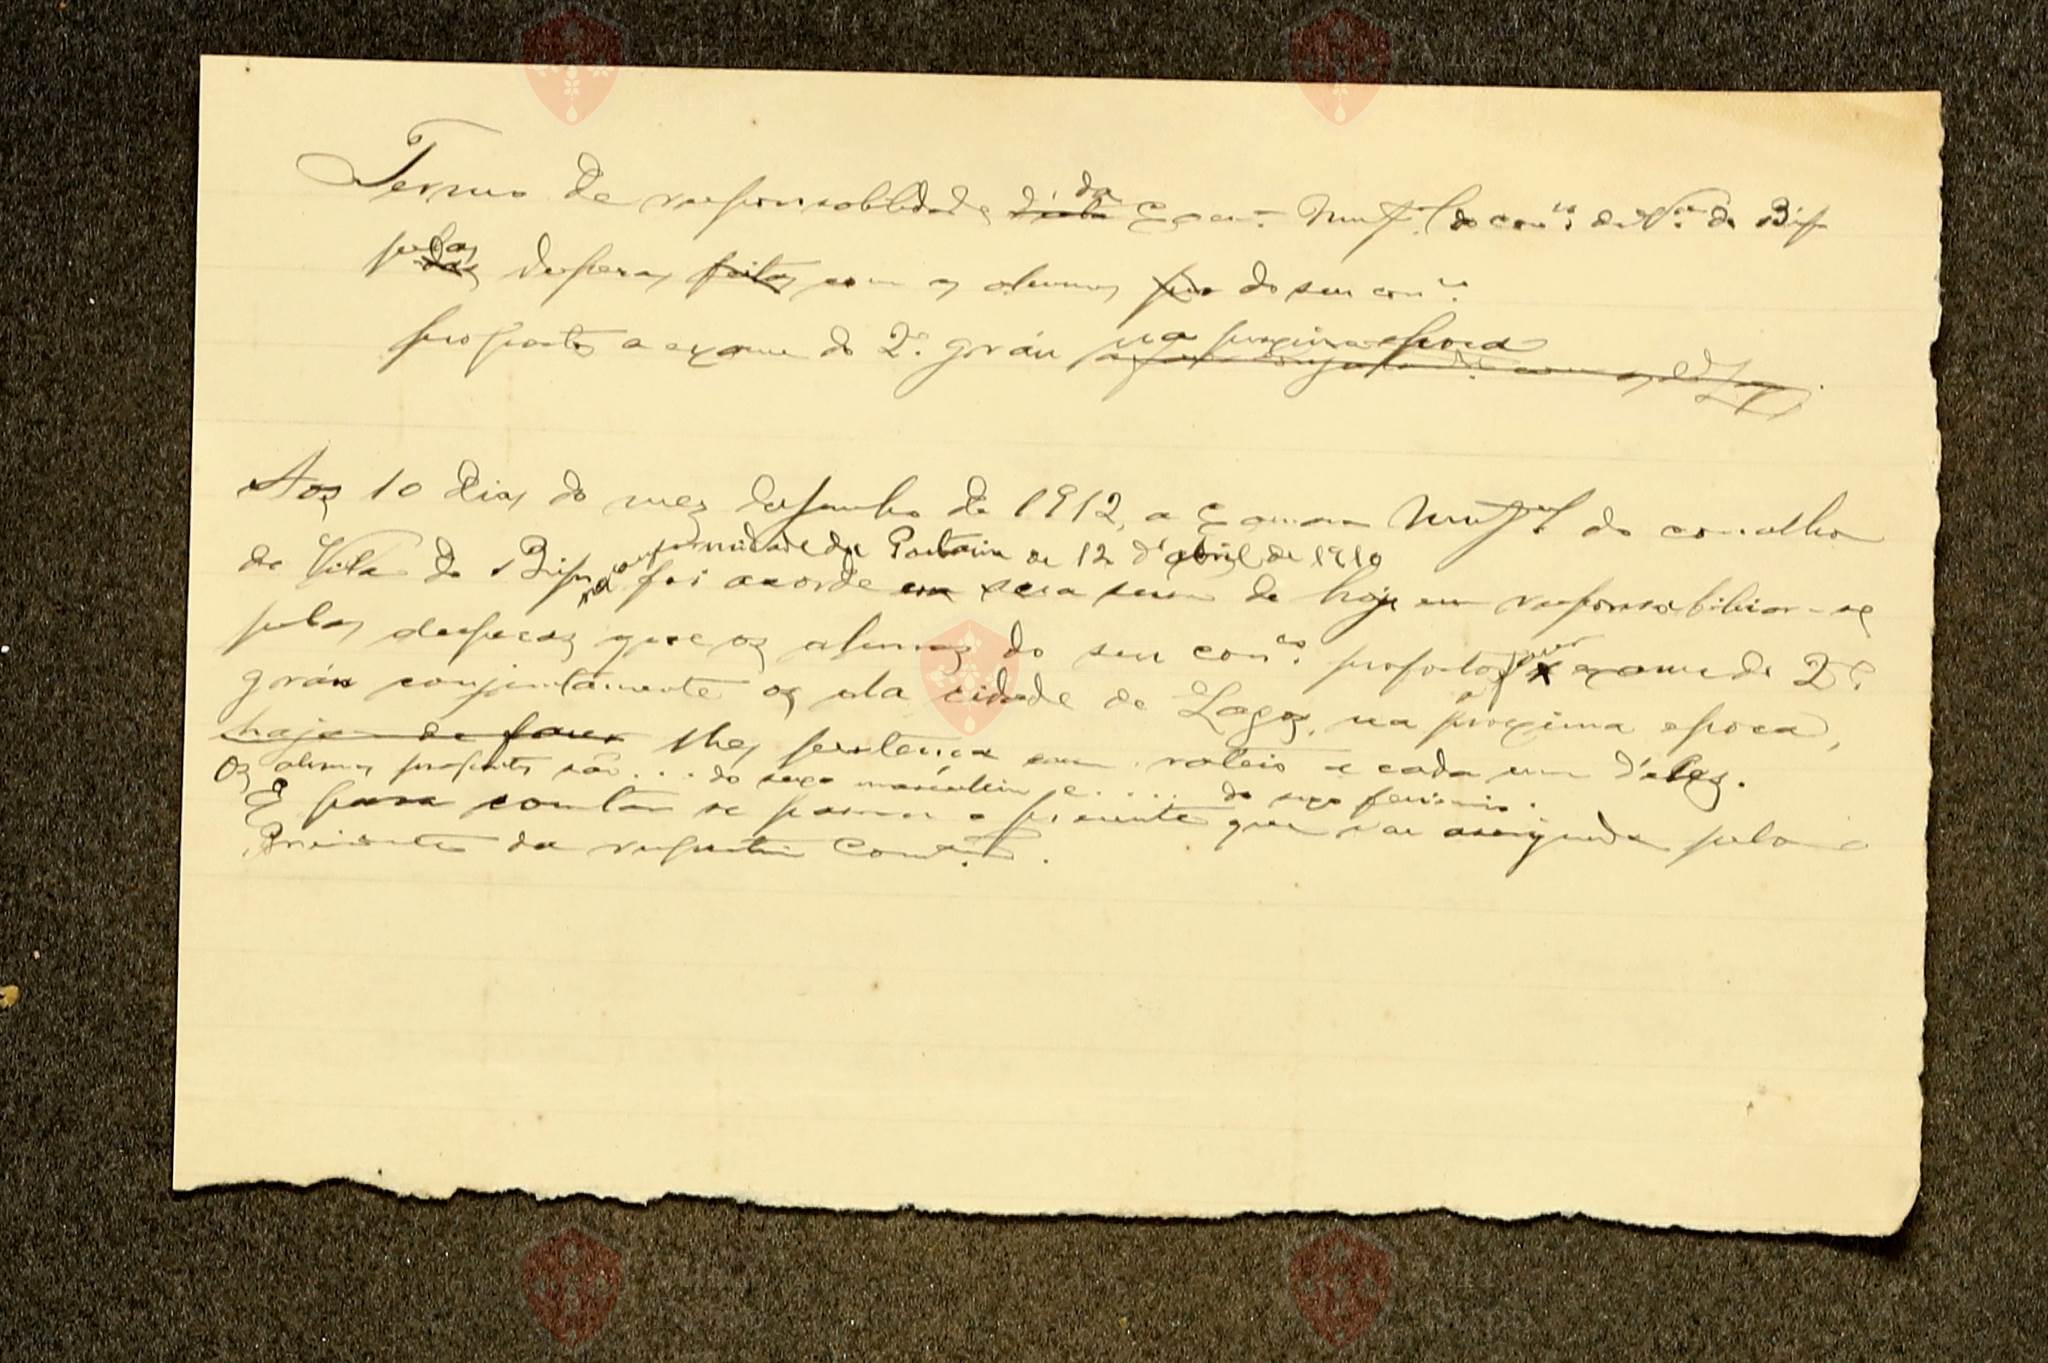 Termo de responsabilidade da Camª Mun.al do con.co de V.ª do Bispo
pelas despezas feitas com os alumnos do seu con.co
propostos a exame do 2.º gráu na proxima epoca
Aos 10 dias do mez de junho de 1912, a Camara Mun.al do concelho
da Vila do Bispo na conformidade da Portaria de 12 d'abril de 1910
foi acorde em sua sessão de hoje em responsabilisar-se
pelas despezas que os alumnos do seu con.co propostos exame do 2.º
gráu conjuntamente os da cidade de Lagos, na proxima epoca,
hajam de fazer lhes pertença em rateio a cada um d'eles.
Os alumnos propostos são . . . do sexo masculino e . . . . do sexo feminino.
E para constar se passou o presente que vae assignado pelo
Presidente da respectiva Com.ão.